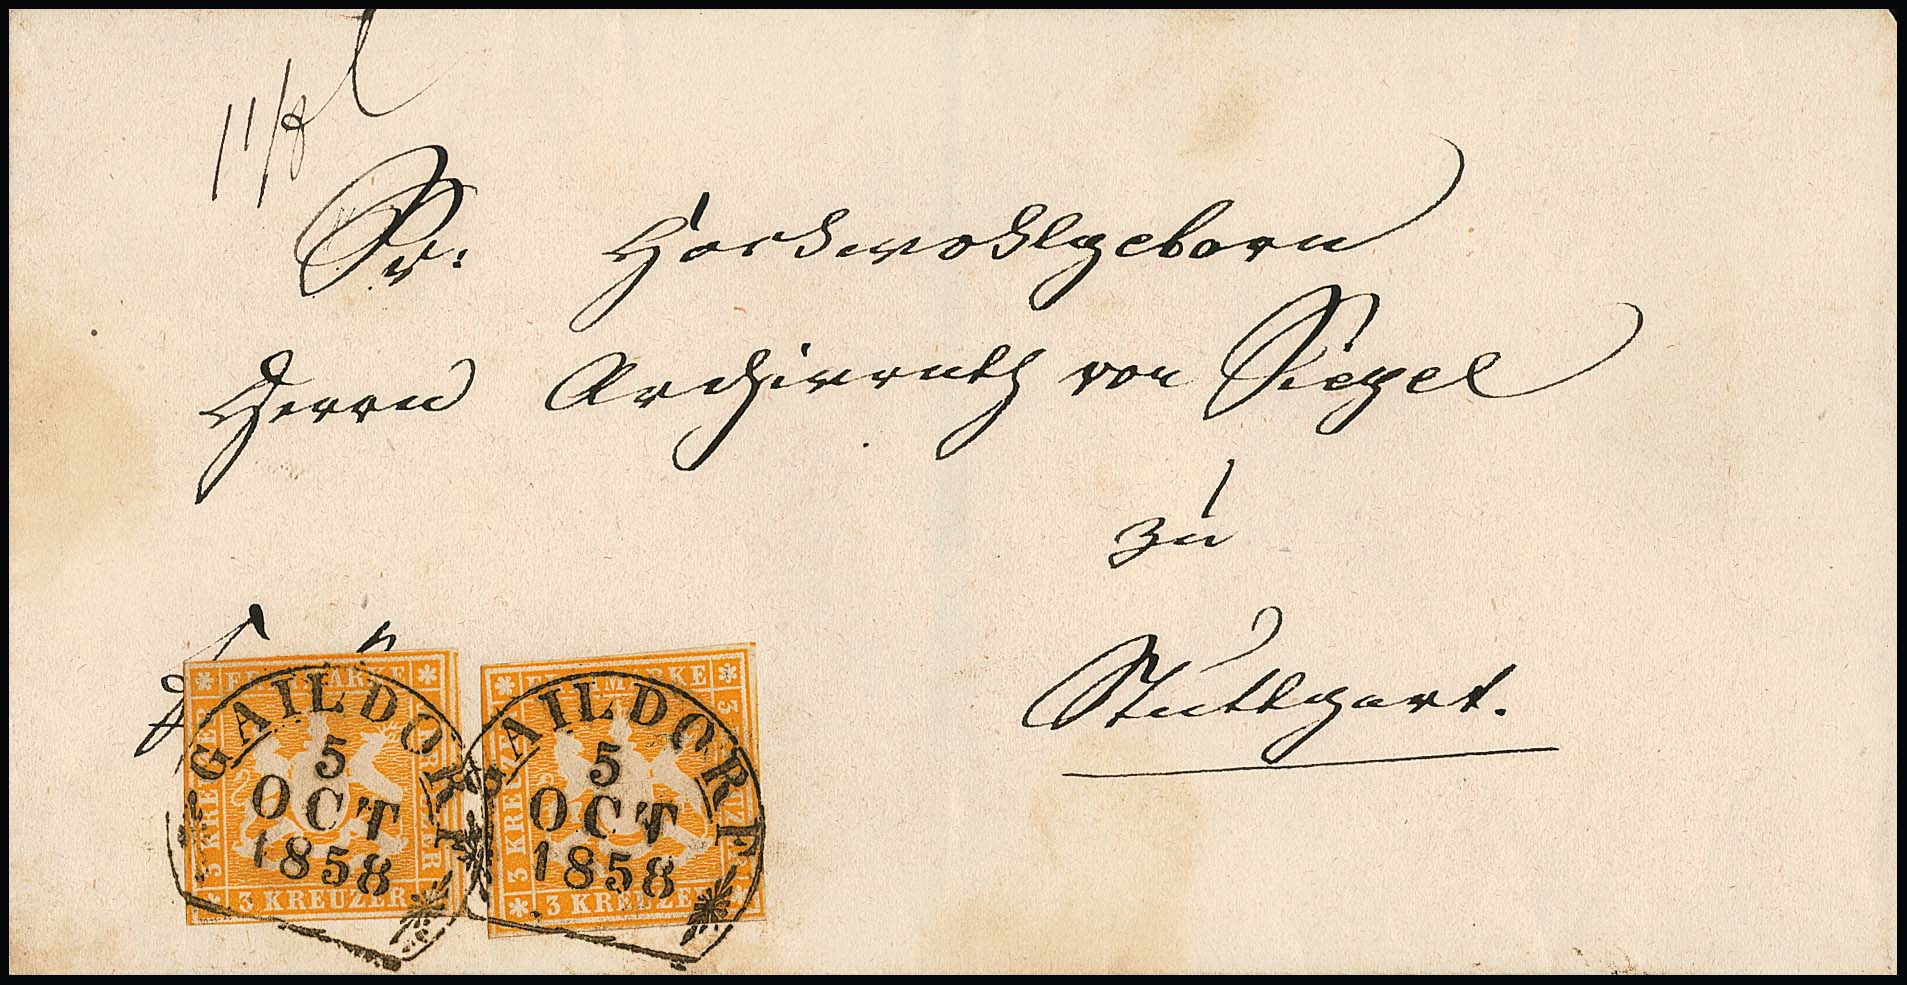 Sr. Hochwohlgeborn
Herrn Archivrath von Siegel
zu
Stuttgart.
FREIMARKE
3 KREUZER
3 KREUZER
GAILDORF
5
OCT
1858
FREIMARKE
3 KREUZER
3 KREUZER
GAILDORF
5
OCT
1858